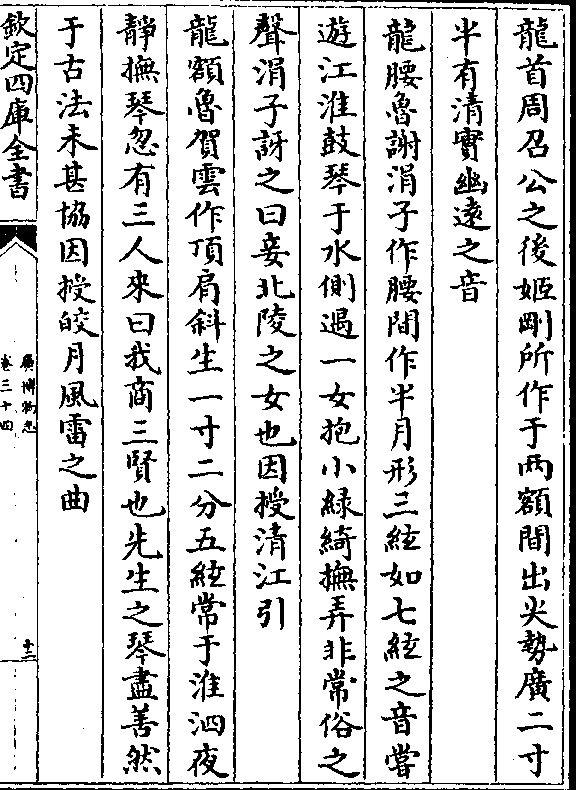 龍首周召公之後姬剛所作于兩額間出尖勢廣二寸
半有清實幽遠之音
龍腰魯謝涓子作腰間作半月形三絃如七絃之音嘗
遊江淮鼓琴于水側遇一女抱小緑綺撫弄非常俗之
聲涓子訝之曰妾北陵之女也因授清江引
龍額魯賀雲作頂肩斜生一寸二分五絃常于淮泗夜
靜撫琴忽有三人來曰我商三賢也先生之琴盡善然
于古法未甚協因授皎月風雷之曲
欽定四庫全書
廣博物志
卷三十四
十二